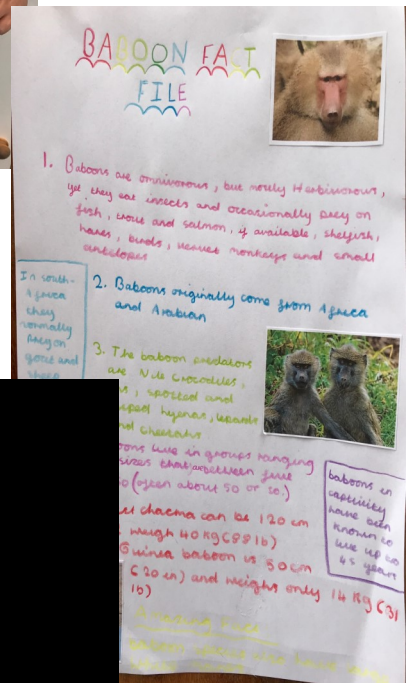 BABOON FACT
FILE
1. Baboons are omnivorous, but mostly Herbivorous,
yet they eat insects and occasionally prey on
fish, trout and salmon, if available, shelfish,
hares, birds, vervet monkeys and small
antelopes
In south-
Africa
they
normally
prey on
goat and
sheep
2. Baboons originally come from Africa
and Arabian
3. The baboon predators
are Nile Crocodiles,
, spotted and
hyenas, leopards
and cheetahs
live in groups ranging
sizes that are between five
(often about 50 or so.)
chacma can be 120 cm
weigh 40 kg (88 lb)
Guinea baboon is 50 cm
(20 in) and weighs only 14 kg (31
lb)
baboons in
captivity
have been
known to
live up to
45 years